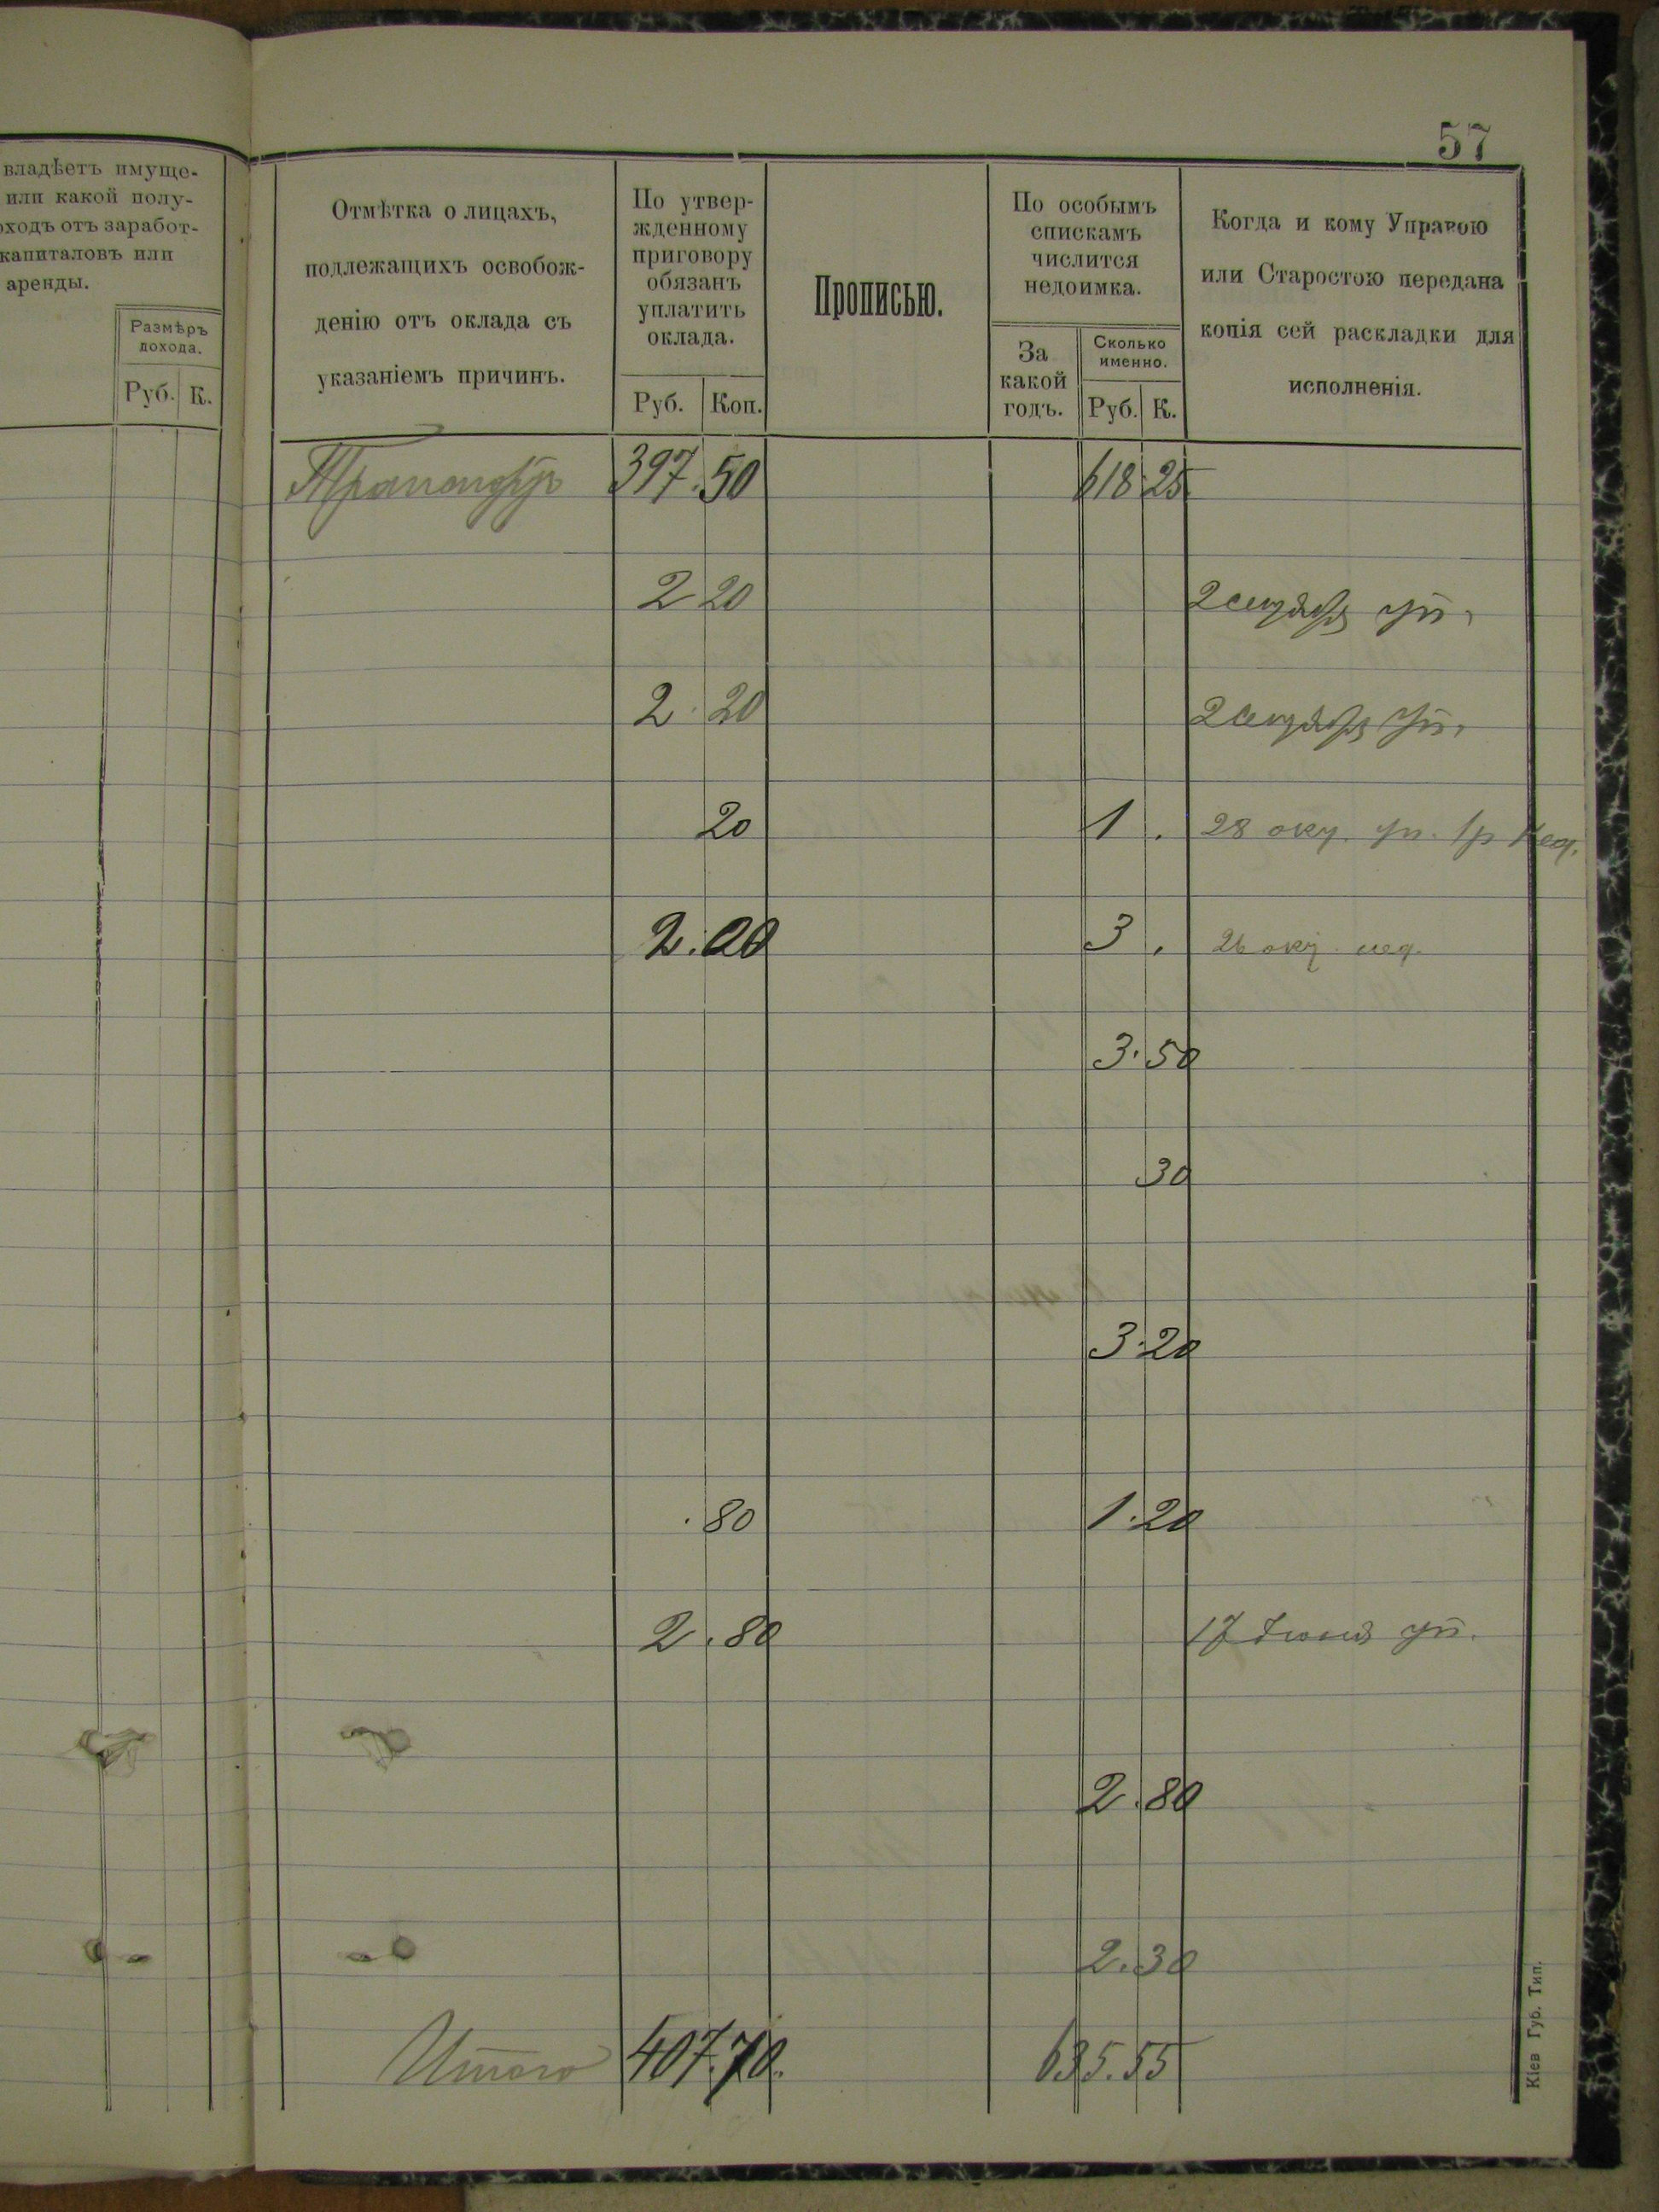 57
владѣетъ имуще-
или какой полу-
оходъ отъ заработ-
капиталовъ или
аренды.
Размѣръ
дохода.
Руб. К.
Отмѣтка о лицахъ,
подлежащихъ освобож-
денію отъ оклада съ
указаніемъ причинъ.
По утвер-
жденному
приговору
обязанъ
уплатить
оклада.
Руб. Коп.
Прописью.
По особымъ
спискамъ
числится
недоимка.
За
какой
годъ.
Сколько
именно.
Руб. К.
Когда и кому Управою
или Старостою передана
копія сей раскладки для
исполненія.
Транспортъ 397.50 618.25
2 20 2 сентября уп.
2. 20 2 сентября уп.
20 1 . 28 окт. уп. 1р нед.
2.00 3 . 26 окт. нед.
3.50
30
3.20
.80 1.20
2.80 17 Іюня уп.
2.80
2.30
Итого 407.70. 635.55
Кіев Губ. Тип.